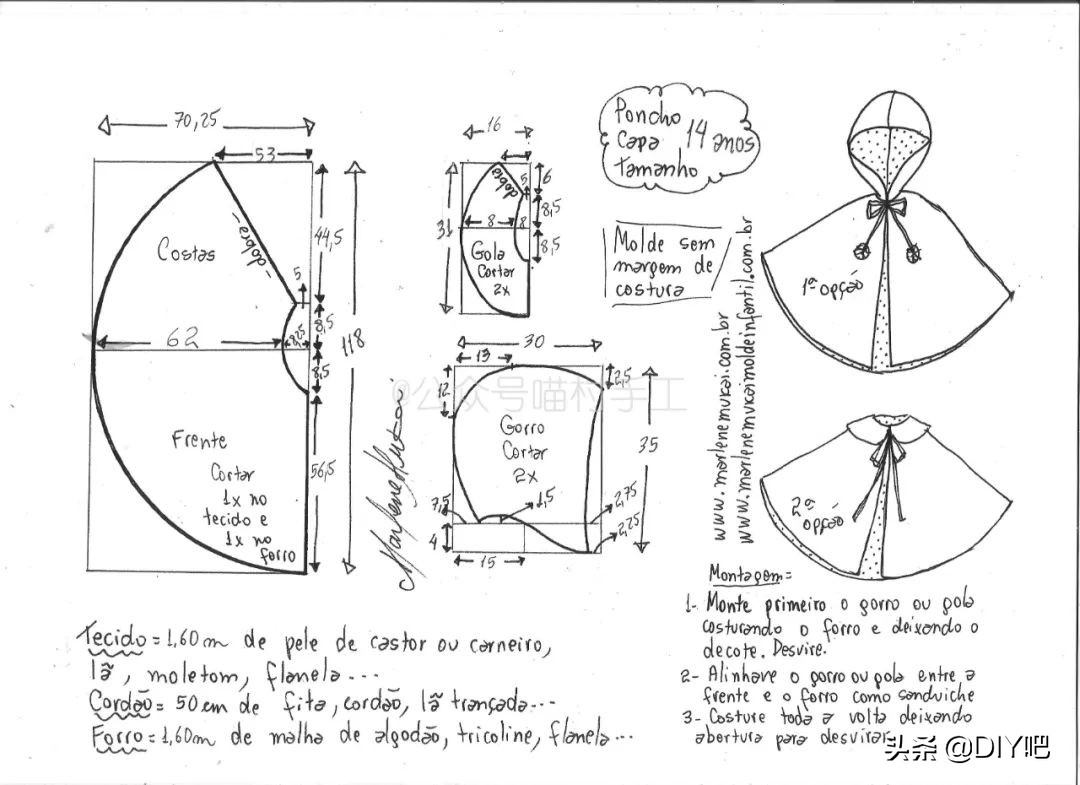 Poncho
Capa 14 anos
Tamanho
Molde sem
margem de
costura
70,25
53
Costas
-dobra-
44,5
5
8,5
8,25
62
118
8,5
Frente
Cortar
1x no
tecido e
1x no
forro
56,5
16
dobra
5
6
8,5
31
8
8
8,5
Gola
Cortar
2x
30
13
2,5
12
Gorro
Cortar
2x
35
7,5
1,5
2,75
4
2,25
15
@公众号喵村手工
Marlene Mukai
www.marlenemukai.com.br
www.marlenemukaimoldeinfantil.com.br
1ª opção
2ª opção
Tecido = 1,60m de pele de castor ou carneiro,
lã, moletom, flanela...
Cordão = 50 cm de fita, cordão, lã trançada...
Forro = 1,60m de malha de algodão, tricoline, flanela...
Montagem =
1- Monte primeiro o gorro ou gola
costurando o forro e deixando o
decote. Desvire.
2- Alinhave o gorro ou gola entre a
frente e o forro como sanduiche
3- Costure toda a volta deixando
abertura para desvirar
头条 @DIY吧